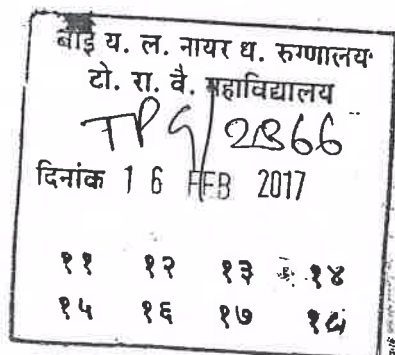 बाई य. ल. नायर ध. रुग्णालय
टो. रा. वै. महाविद्यालय
TPG/2366
दिनांक 16 FEB 2017
११ १२ १३ १४
१५ १६ १७ १८